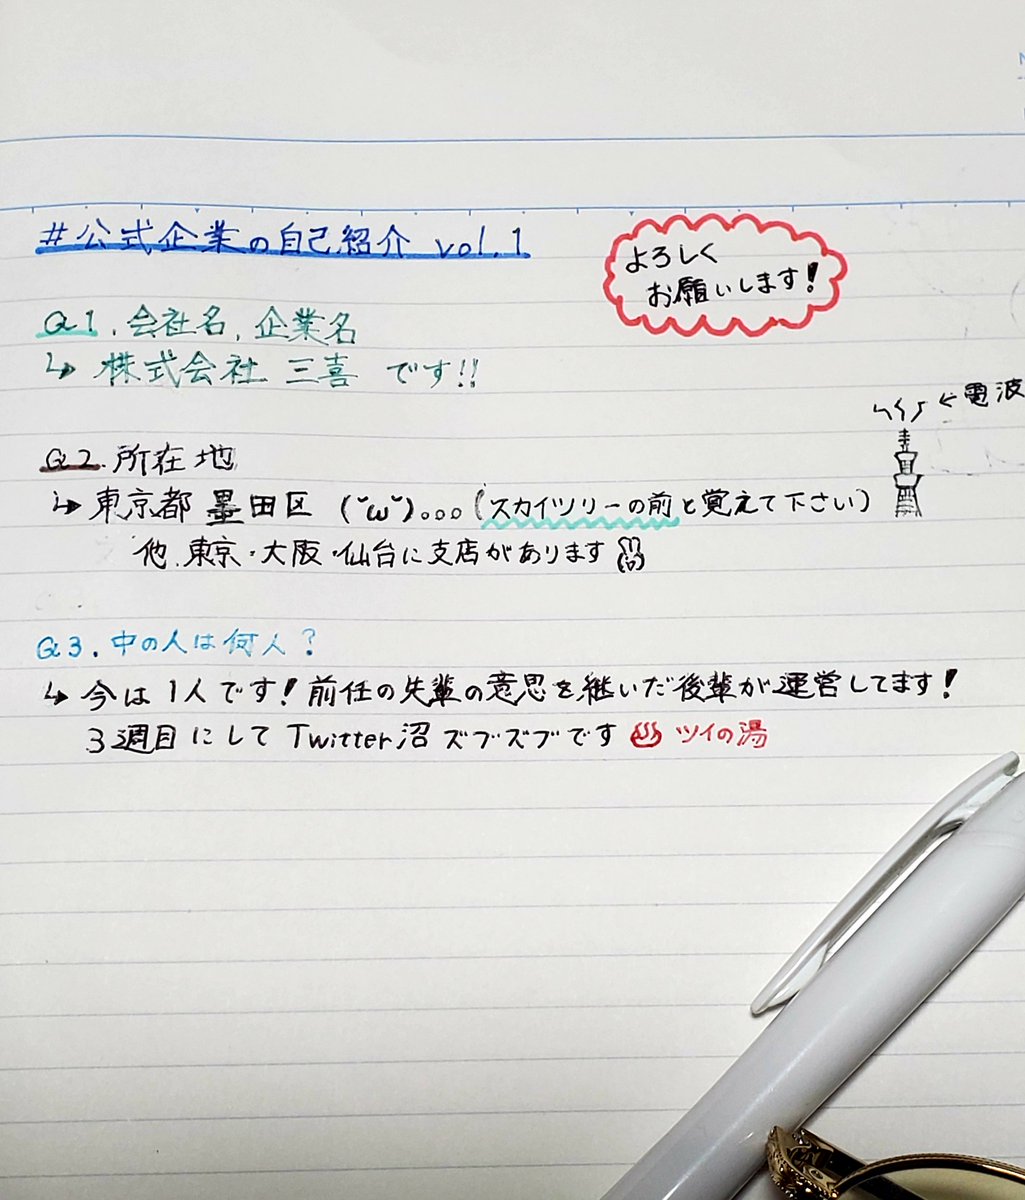 #公式企業の自己紹介 vol.1
よろしく
お願いします!
Q1.会社名,企業名
↳ 株式会社 三喜 です!!
←電波
Q2.所在地
↳ 東京都 墨田区 (˘ω˘)。。。(スカイツリーの前と覚えて下さい)
他.東京・大阪・仙台に支店があります
Q3.中の人は何人?
↳ 今は1人です!前任の先輩の意思を継いだ後輩が運営してます!
3週目にしてTwitter沼ズブズブです♨ツイの湯